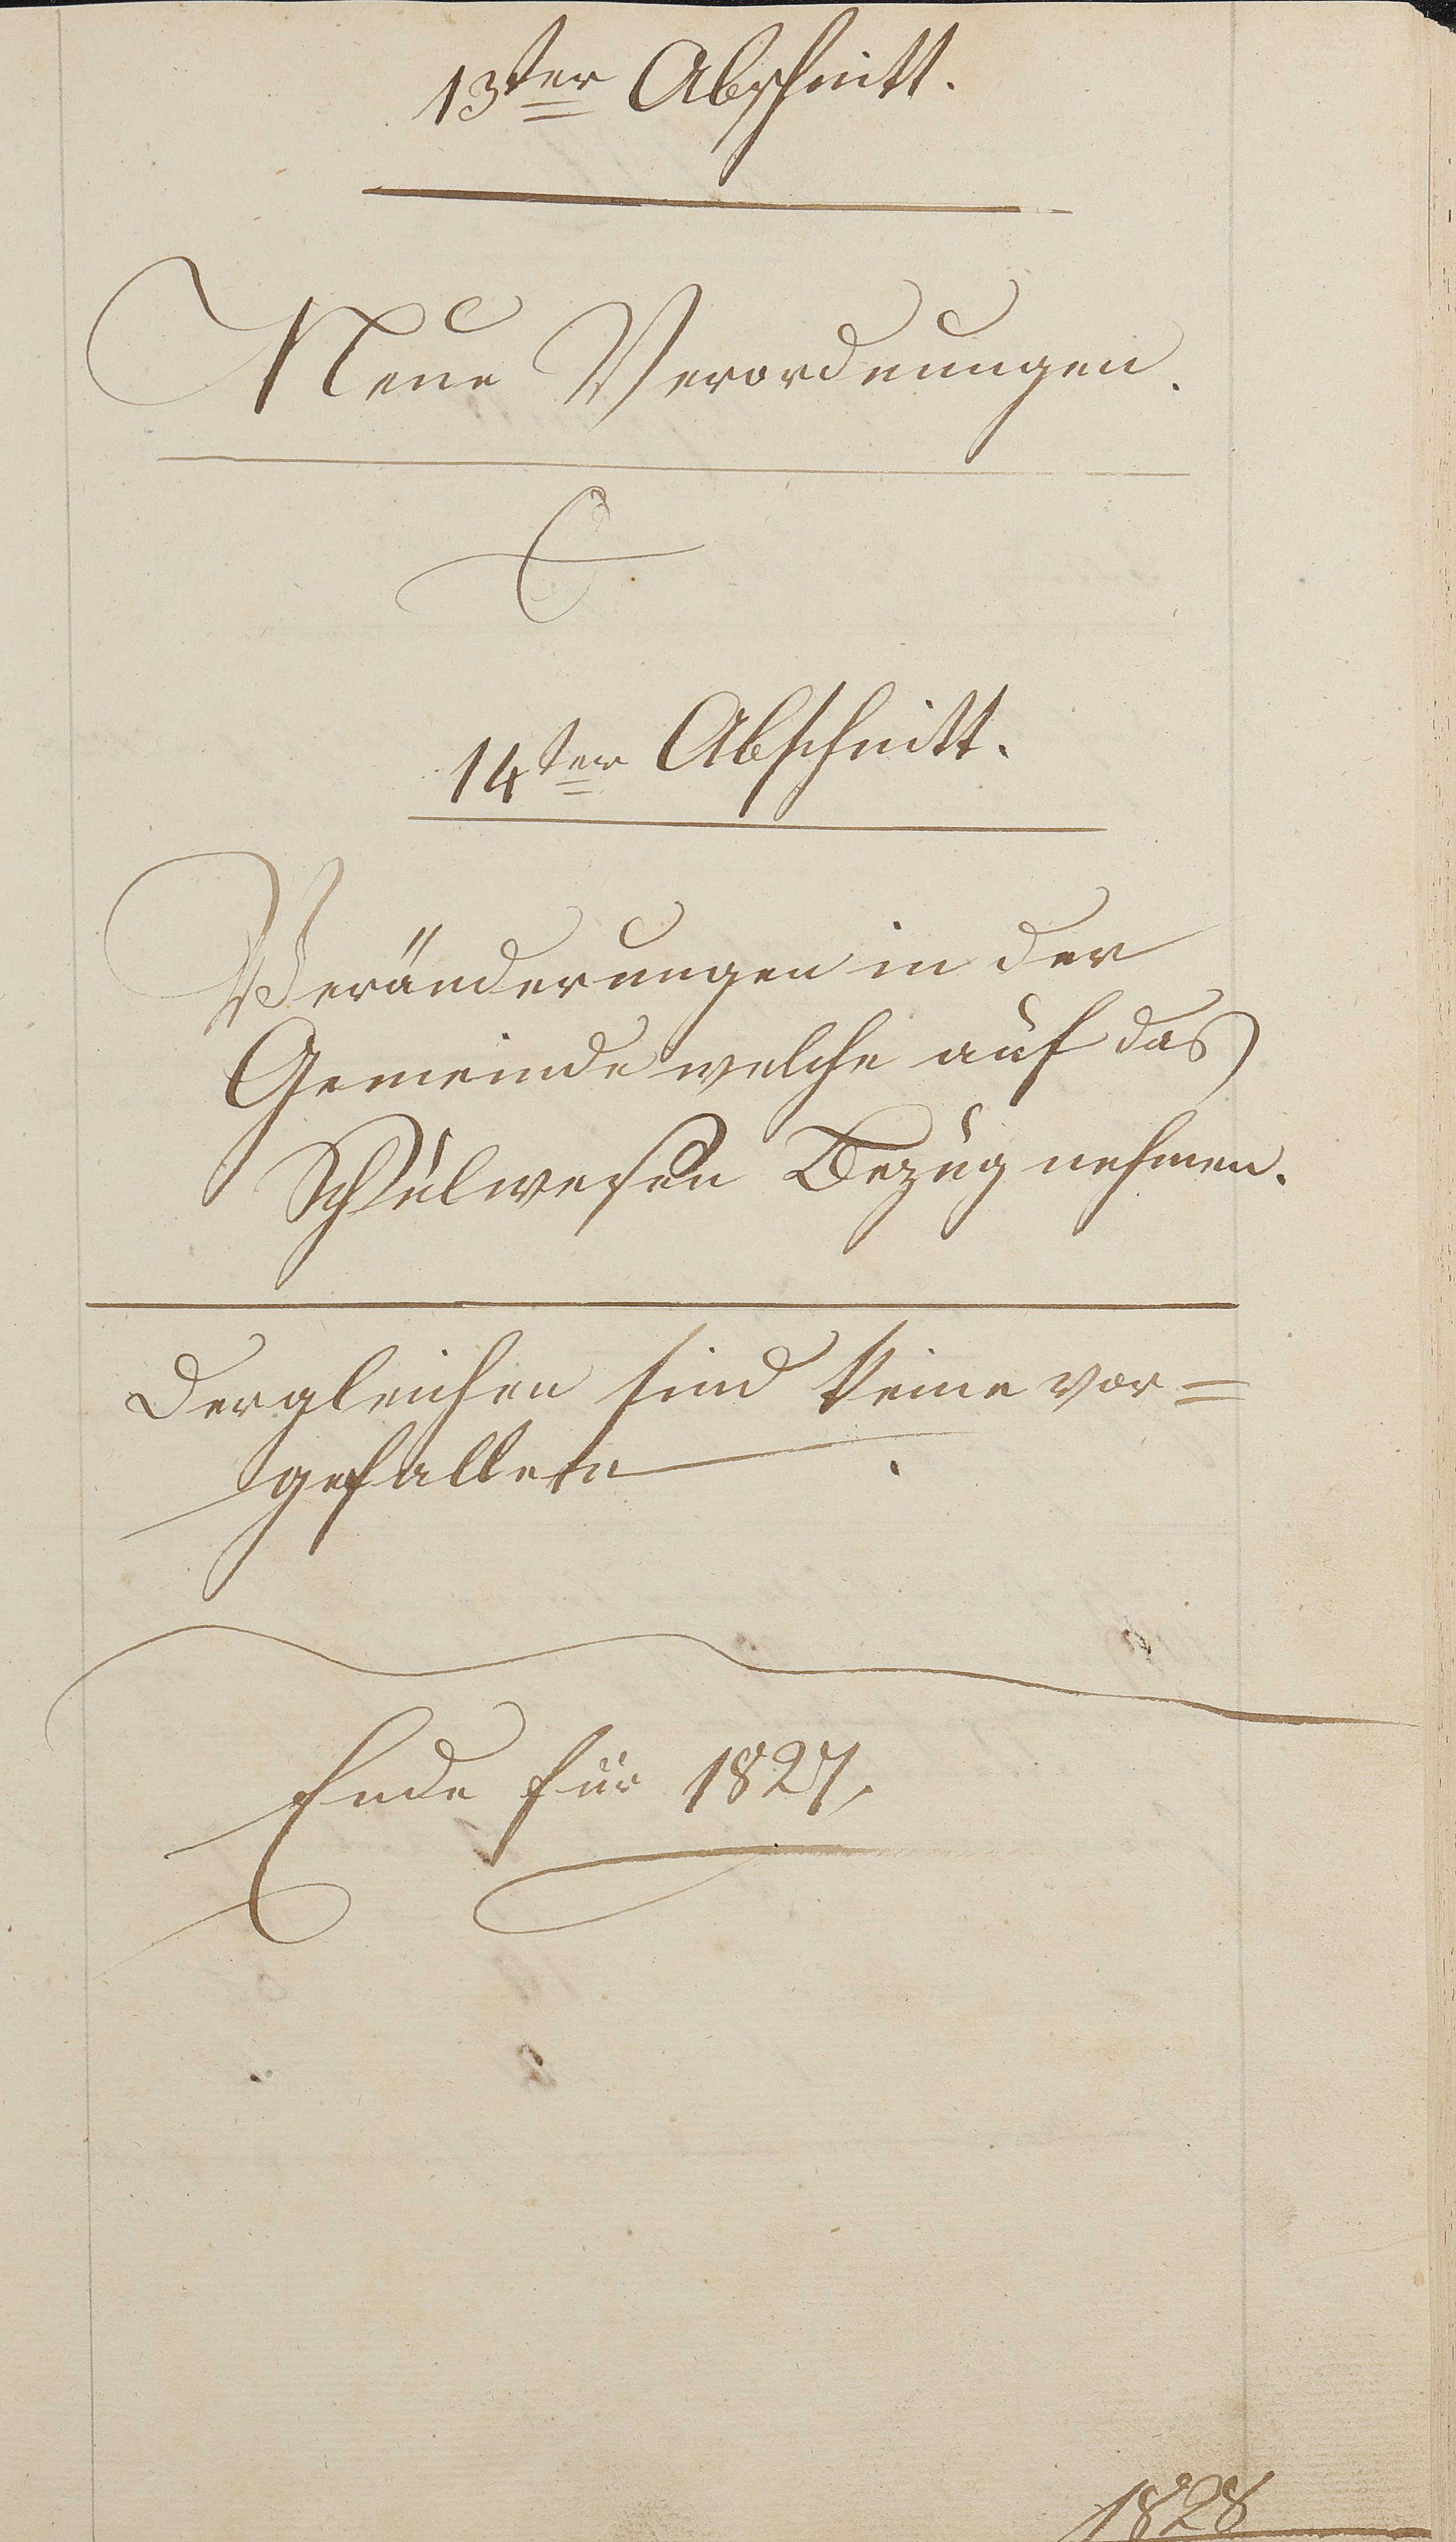 13ter Abschnitt.
Neue Verordnungen.
14ter Abschnitt.
Veränderungen in der
Gemeinde welche auf das
Schulwesen Bezug nehmen.
Dergleichen sind keine vor=
gefallen.
Ende für 1827.
1828